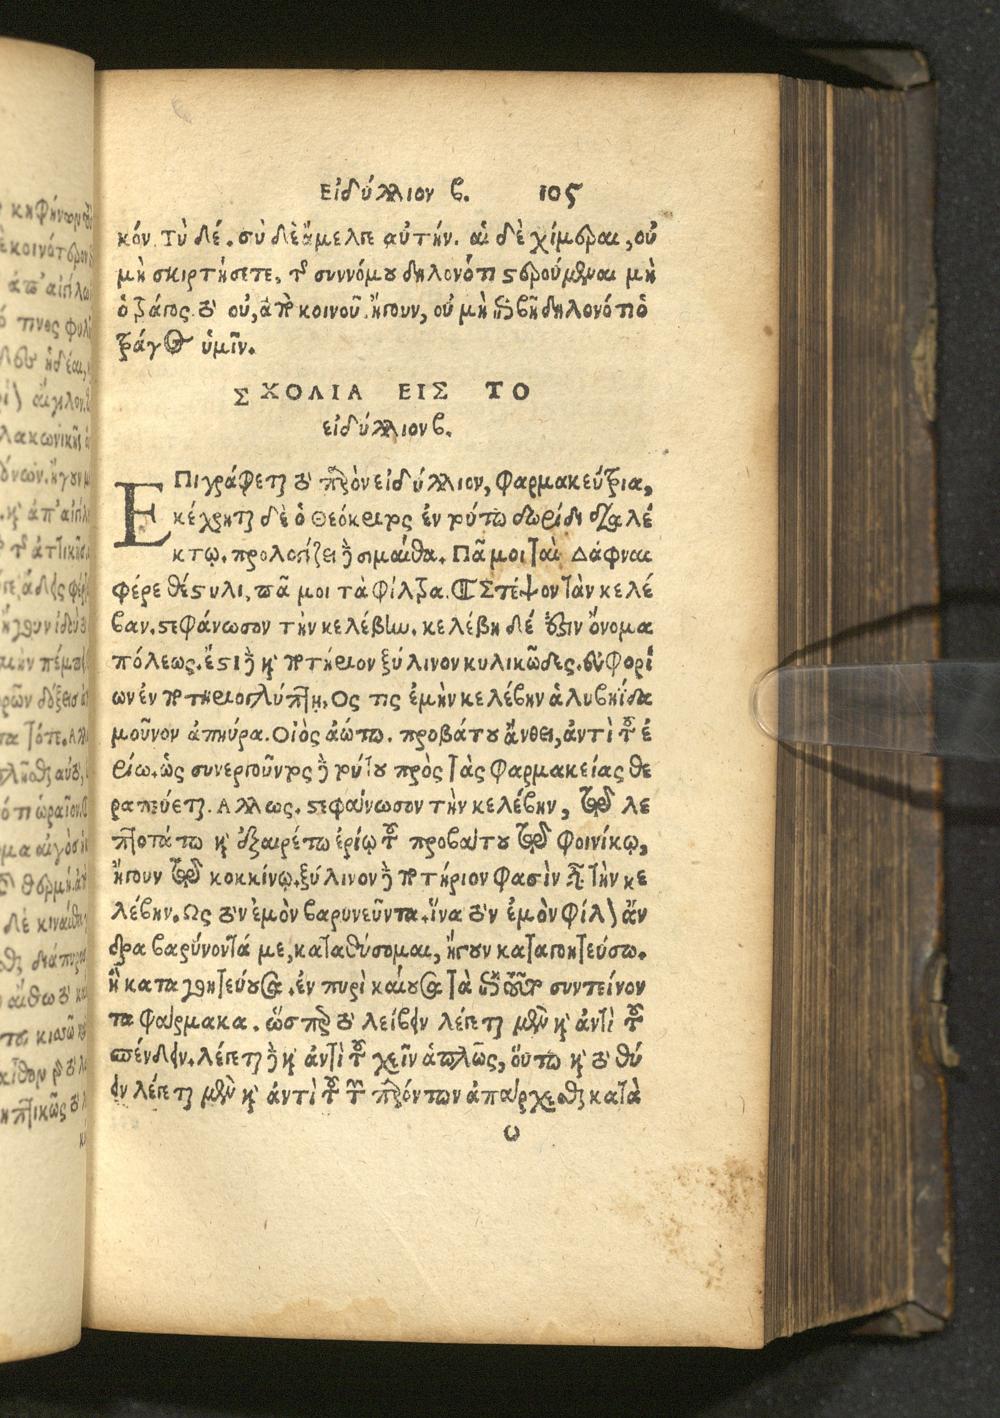 Εἰδύλλιον β. 105
κόν. Τὺ δέ. σὺ δὲ ἄμελγε αὐτήν. αἱ δὲ χίμαραι, οὐ
μὴ σκιρτήσετε, τῇ συννόμου δηλονότι στρούμεναι μὴ
ὁ τράγος. τὸ οὐ, ἀπὸ κοινοῦ. ἤγουν, οὐ μὴ ἀναβῇ δηλονότι ὁ
τράγος ὑμῖν.
ΣΧΟΛΙΑ ΕΙΣ ΤΟ
εἰδύλλιον β.
ΕΠιγράφεται τὸ παρὸν εἰδύλλιον, Φαρμακεύτρια,
κέχρηται δὲ ὁ Θεόκριτος ἐν τούτῳ δωρίδι διαλέ
κτῳ. προλογίζει δὲ σιμαίθα. Πᾶ μοι ταὶ Δάφναι
φέρε θέστυλι, πᾶ μοι τὰ φίλτρα. Στέψον τὰν κελέ
βαν. στεφάνωσον τὴν κελέβην. κελέβη δέ ἐστιν ὄνομα
πόλεως. ἔστι δὲ καὶ ποτήριον ξύλινον κυλικῶδες. εὐφορί
ων ἐν ποτηριοκλέπτῃ, Ος τις ἐμὴν κελέβην ἀλυβηΐδα
μοῦνον ἀπηύρα. Οἰὸς ἀώτῳ. προβάτου ἄνθει, ἀντὶ τοῦ ἐ
ρίῳ. ὡς συνεργοῦντος δὲ τούτου πρὸς τὰς φαρμακείας θε
ραπεύεται. Αλλως. στεφάνωσον τὴν κελέβην, τῷ λε
πτοτάτῳ καὶ ἐξαιρέτῳ ἐρίῳ τοῦ προβάτου τῷ φοινίκῳ,
ἤγουν τῷ κοκκίνῳ. ξύλινον δὲ ποτήριον φασὶν εἶναι τὴν κε
λέβην. Ως τὸν ἐμὸν βαρυνεῦντα. ἵνα τὸν ἐμὸν φίλον ἄν
δρα βαρύνοντά με, καταθύσομαι, ἤγουν καταγοητεύσω.
ἢ καταγοητεύουσα. ἐν πυρὶ καίουσα τὰ πρὸς ἔρωτα συντείνον
τα φάρμακα. ὥσπερ τὸ λείβειν λέγεται μὲν καὶ ἀντὶ τοῦ
σπένδειν. λέγεται δὲ καὶ ἀντὶ τοῦ χεῖν ἁπλῶς, οὕτω καὶ τὸ θύ
ειν λέγεται μὲν καὶ ἀντὶ τοῦ τῶν παρόντων ἀπάρχεσθαι κατὰ
ω